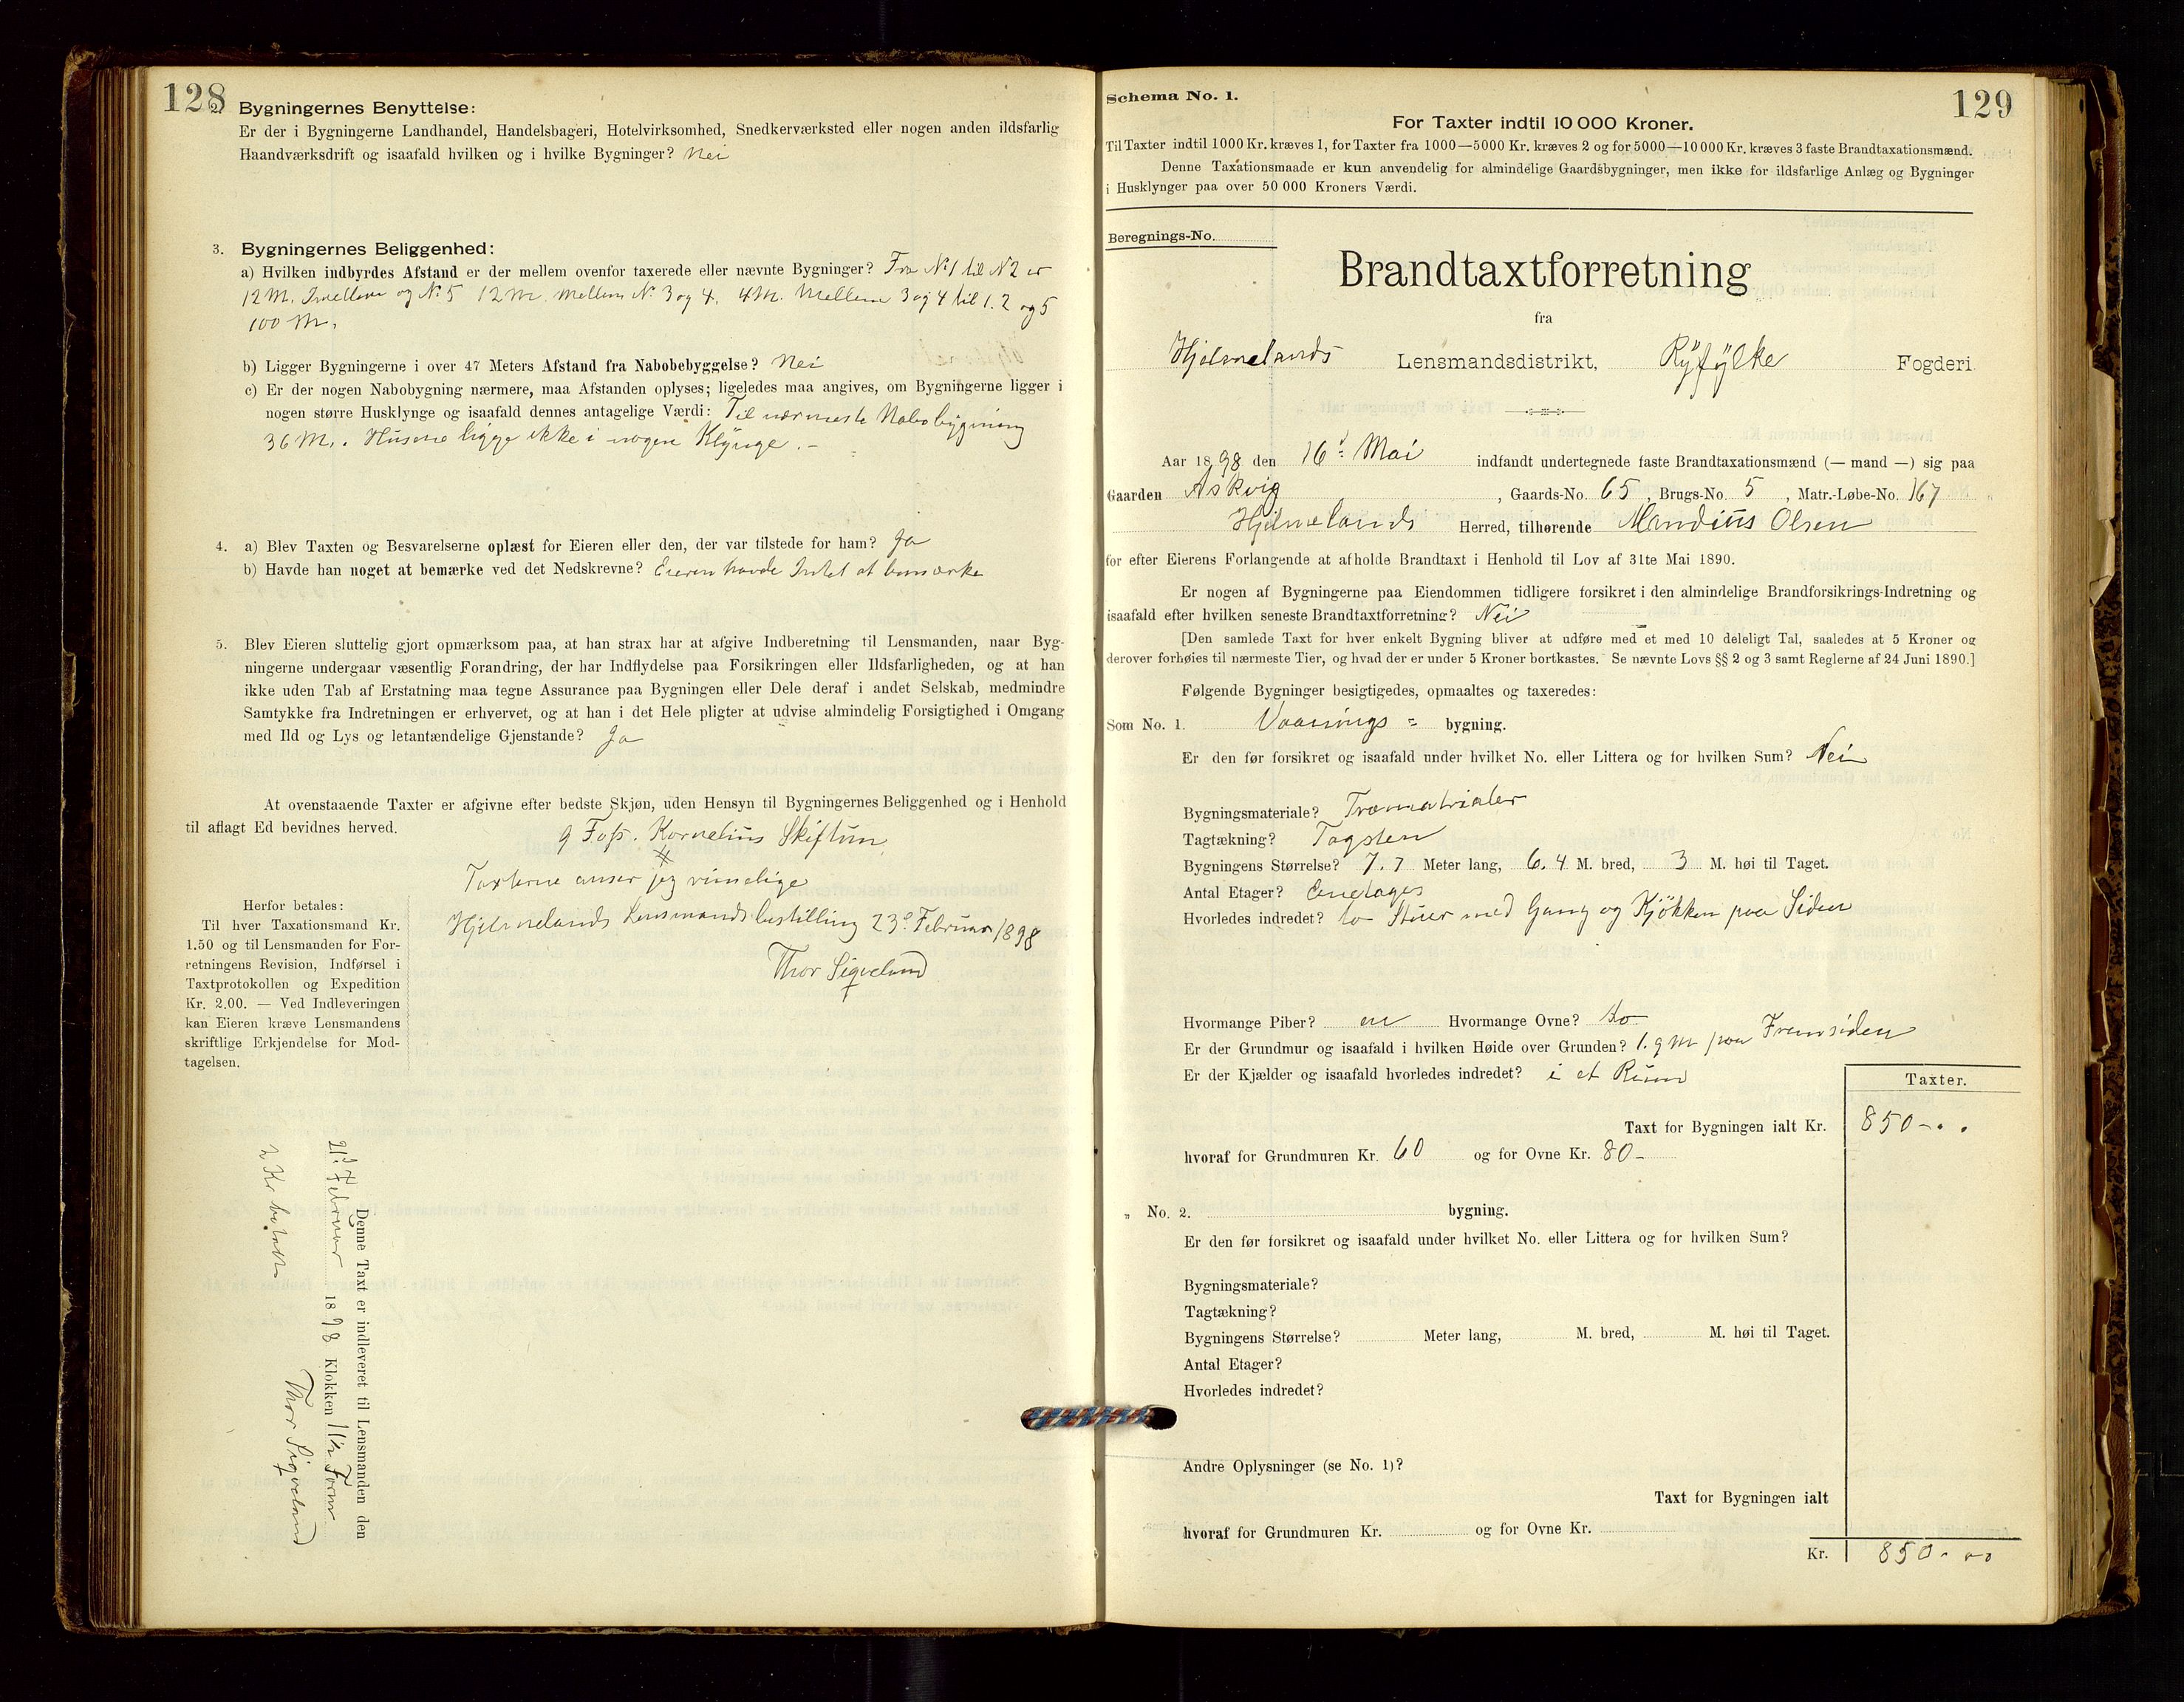 128
2. Bygningernes Benyttelse:
Er der i Bygningerne Landhandel, Handelsbageri, Hotelvirksomhed, Snedkerværksted eller nogen anden ildsfarlig
Haandværksdrift og isaafald hvilken og i hvilke Bygninger? Nei
3. Bygningernes Beliggenhed:
a) Hvilken indbyrdes Afstand er der mellem ovenfor taxerede eller nævnte Bygninger? Fra No 1 til No 2 er
12 M. Imellem og No 5 12 M. mellem No 3 og 4. 4 M. Mellem 3 og 4 til 1. 2 og 5
100 M.
b) Ligger Bygningerne i over 47 Meters Afstand fra Nabobebyggelse? Nei
c) Er der nogen Nabobygning nærmere, maa Afstanden oplyses; ligeledes maa angives, om Bygningerne ligger i
nogen større Husklynge og isaafald dennes antagelige Værdi: Til nærmeste Nabobygning
36 M. Husene ligge ikke i nogen Klynge. –
4. a) Blev Taxten og Besvarelserne oplæst for Eieren eller den, der var tilstede for ham? Ja
b) Havde han noget at bemærke ved det Nedskrevne? Eieren havde Intet at bemærke
5. Blev Eieren sluttelig gjort opmærksom paa, at han strax har at afgive Indberetning til Lensmanden, naar Byg-
ningerne undergaar væsentlig Forandring, der har Indflydelse paa Forsikringen eller Ildsfarligheden, og at han
ikke uden Tab af Erstatning maa tegne Assurance paa Bygningen eller Dele deraf i andet Selskab, medmindre
Samtykke fra Indretningen er erhvervet, og at han i det Hele pligter at udvise almindelig Forsigtighed i Omgang
med Ild og Lys og letantændelige Gjenstande? Ja
At ovenstaaende Taxter er afgivne efter bedste Skjøn, uden Hensyn til Bygningernes Beliggenhed og i Henhold
til aflagt Ed bevidnes herved.
G Foss. Kornelius Skiftun
Taxterne anser jeg rimelige
Hjelmelands Lensmandsbestilling 23de Februar 1898
Thor Sigveland
Herfor betales:
Til hver Taxationsmand Kr.
1.50 og til Lensmanden for For-
retningens Revision, Indførsel i
Taxtprotokollen og Expedition
Kr. 2.00. — Ved Indleveringen
kan Eieren kræve Lensmandens
skriftlige Erkjendelse for Mod-
tagelsen.
Denne Taxt er indleveret til Lensmanden den
21d Februar 1898 Klokken 11½ Form
2 Kr betalt
Thor Sigveland
129
Schema No. 1.
For Taxter indtil 10 000 Kroner.
Til Taxter indtil 1000 Kr. kræves 1, for Taxter fra 1000—5000 Kr. kræves 2 og for 5000—10 000 Kr. kræves 3 faste Brandtaxationsmænd.
Denne Taxationsmaade er kun anvendelig for almindelige Gaardsbygninger, men ikke for ildsfarlige Anlæg og Bygninger
i Husklynger paa over 50 000 Kroners Værdi.
Beregnings-No.
Brandtaxtforretning
fra
Hjelmelands Lensmandsdistrikt, Ryfylke Fogderi
Aar 1898 den 16d Mai indfandt undertegnede faste Brandtaxationsmænd (— mand —) sig paa
Gaarden Askvig, Gaards-No. 65, Brugs-No. 5, Matr.-Løbe-No. 167
Hjelmelands Herred, tilhørende Mandius Olsen
for efter Eierens Forlangende at afholde Brandtaxt i Henhold til Lov af 31te Mai 1890.
Er nogen af Bygningerne paa Eiendommen tidligere forsikret i den almindelige Brandforsikrings-Indretning og
isaafald efter hvilken seneste Brandtaxtforretning? Nei
[Den samlede Taxt for hver enkelt Bygning bliver at udføre med et med 10 deleligt Tal, saaledes at 5 Kroner og
derover forhøies til nærmeste Tier, og hvad der er under 5 Kroner bortkastes. Se nævnte Lovs §§ 2 og 3 samt Reglerne af 24 Juni 1890.]
Følgende Bygninger besigtigedes, opmaaltes og taxeredes:
Som No. 1. Vaanings = bygning.
Er den før forsikret og isaafald under hvilket No. eller Littera og for hvilken Sum? Nei
Bygningsmateriale? Træmatrialer
Tagtækning? Tagsten
Bygningens Størrelse? 7.7 Meter lang, 6.4 M. bred, 3 M. høi til Taget.
Antal Etager? Enetages
Hvorledes indredet? to Stuer med Gang og Kjøkken paa Siden
Hvormange Piber? en Hvormange Ovne? to
Er der Grundmur og isaafald i hvilken Høide over Grunden? 1.9 M paa Fremsiden
Er der Kjælder og isaafald hvorledes indredet? i et Rum
Taxter.
Taxt for Bygningen ialt Kr. 850 - . .
hvoraf for Grundmuren Kr. 60 og for Ovne Kr. 80 -
" No. 2. bygning.
Er den før forsikret og isaafald under hvilket No. eller Littera og for hvilken Sum?
Bygningsmateriale?
Tagtækning?
Bygningens Størrelse? Meter lang, M. bred, M. høi til Taget.
Antal Etager?
Hvorledes indredet?
Andre Oplysninger (se No. 1)?
Taxt for Bygningen ialt
hvoraf for Grundmuren Kr. og for Ovne Kr.
Kr. 850 - 00